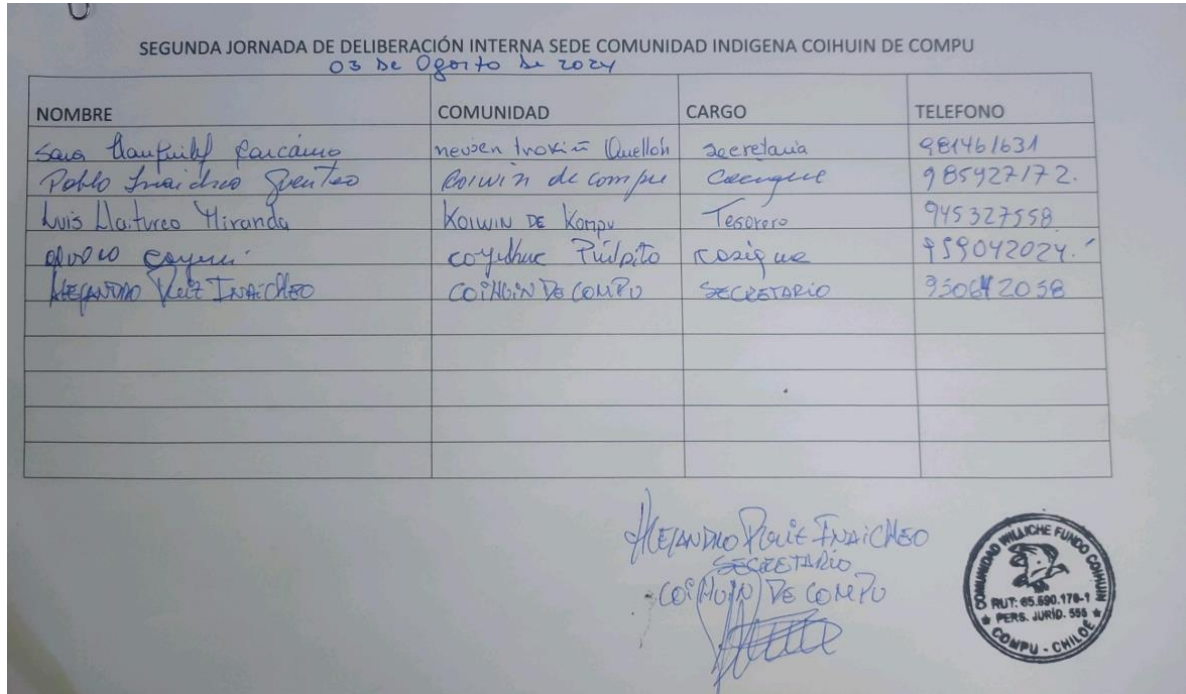 SEGUNDA JORNADA DE DELIBERACIÓN INTERNA SEDE COMUNIDAD INDIGENA COIHUIN DE COMPU
03 De Agosto De 2024
NOMBRE COMUNIDAD CARGO TELEFONO
Sara Cárcamo newen Quellón secretaria 981461631
Pablo Inaicheo Coiwin de compu Cacique 985927172.
Luis Llaitureo Miranda KOIWIN DE Kompu Tesorero 945327558
Púlpito 959042024.
ALEJANDRO Ruiz INAICHEO COIHUIN DE COMPU SECRETARIO
ALEJANDRO Ruiz INAICHEO
SECRETARIO
COIHUIN DE COMPU
COMUNIDAD WILLICHE FUNDO COIHUIN
RUT: 65.590.178-1
PERS. JURÍD. 556
COMPU - CHILOÉ